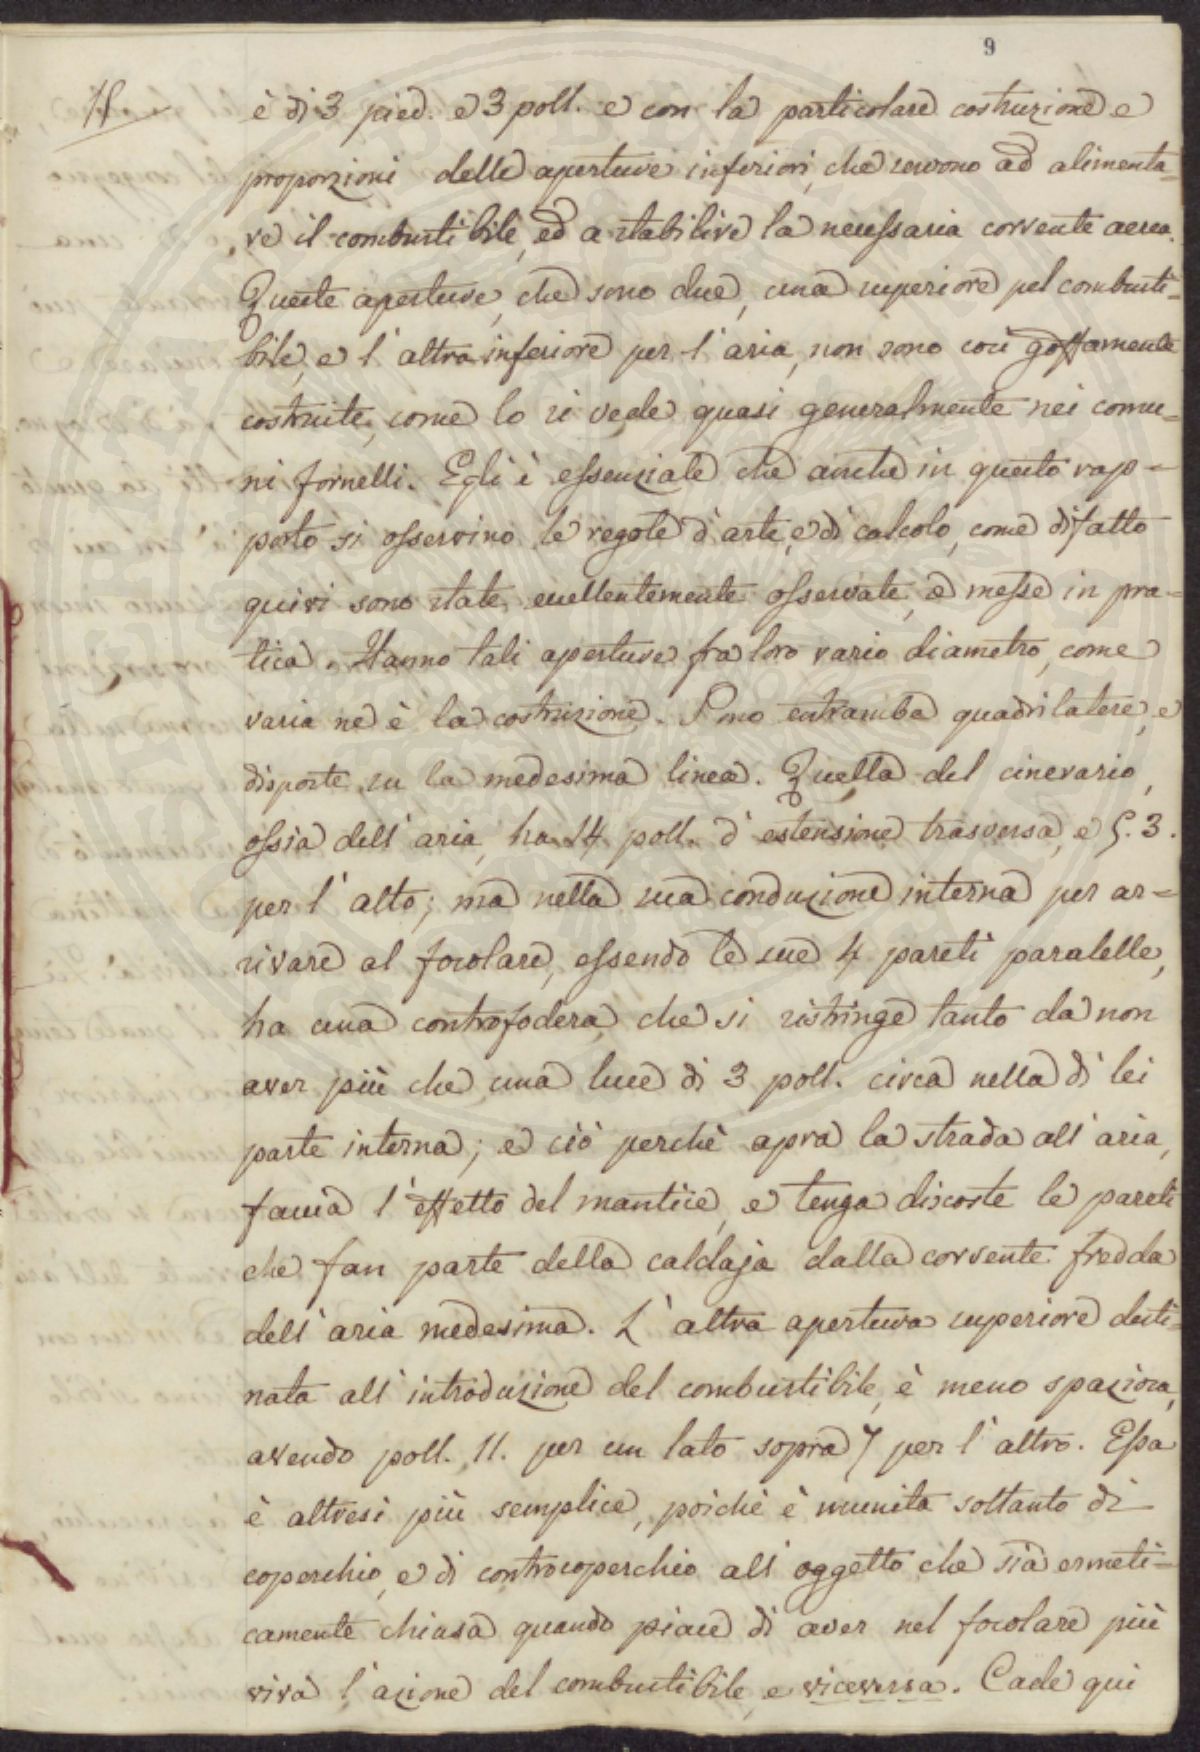 9
è di 3 pied. e 3 poll. e con la particolare costruzione e
proporzioni delle aperture inferiori, che servono ad alimenta=
re il combustibile, ed a stabilire la necessaria corrente aerea.
Queste aperture, che sono due, una superiore pel combusti=
bile, e l'altra inferiore per l'aria, non sono così goffamente
costruite, come lo si vede quasi generalmente nei comu=
ni fornelli. Egli è essenziale che anche in questo rap=
porto si osservino le regole d'arte, e di calcolo, come difatto
quivi sono state eccellentemente osservate, e messe in pra=
tica. Hanno tali aperture fra loro vario diametro, come
varia ne è la costruzione. Sono entrambe quadrilatere, e
disposte su la medesima linea. Quella del cinerario,
ossia dell'aria, ha 14 poll. d'estensione trasversa, e 5.3.
per l'alto; ma nella sua conduzione interna per ar=
rivare al focolare, essendo le sue 4 pareti paralelle,
ha una controfodera, che si ristringe tanto da non
aver più che una luce di 3 poll. circa nella di lei
parte interna; e ciò perchè apra la strada all'aria,
faccia l'effetto del mantice, e tenga discoste le pareti
che fan parte della caldaja dalla corrente fredda
dell'aria medesima. L'altra apertura superiore desti=
nata all'introduzione del combustibile, è meno spaziosa,
avendo poll. 11. per un lato sopra 7 per l'altro. Essa
è altresì più semplice, poichè è munita soltanto di
coperchio, e di controcoperchio all'oggetto che sia ermeti=
camente chiusa quando piace di aver nel focolare più
viva l'azione del combustibile, e viceversa. Cade qui